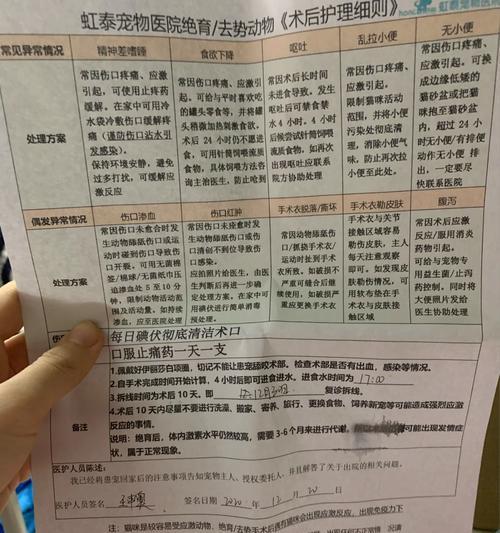 虹泰宠物医院绝育/去势动物《术后护理细则》
虹泰宠物医
常见异常情况 精神差嗜睡 食欲下降 呕吐 乱拉小便 无小便
处理方案
常因伤口疼痛、应激
引起,可使用止疼药
缓解。在家中可用冷
水袋冷敷伤口缓解疼
痛(谨防伤口沾水引
发感染)。
保持环境安静,避免
过多打扰,可缓解应
激反应
常因伤口疼痛、应激引
起。可给与平时喜欢吃
的罐头零食等,并将罐头
稍微加热刺激食欲,
术后 24 小时仍不进食,
可用针筒饲喂流质
食物,具体饲喂方法咨
询主治医生,防止呛到
常因术后长时间
未进食导致。发生
呕吐后可禁食禁
水 4 小时。4 小时
后尝试针筒饲喂
流质食物,如再次
出现呕吐应联系
医院协助处理
常因伤口疼
痛、应激引起。
限制猫咪活动
范围,并将小便
污染处彻底清
理,消除小便气
味,防止再次拉
小便至此处。
常因伤口疼痛、应
激引起。可换
成边缘低矮的
猫砂盆或把猫
咪抱至猫砂盆
内,超过 24 小
时无小便/有排
便动作无小便
排出,一定要尽
快联系医院
偶发异常情况 伤口渗血 伤口红肿 手术衣脱落/撕坏 手术衣勒皮肤 腹泻
处理方案
常因伤口未愈合时发
生动物舔舐伤口或运
动时碰到伤口导致伤
口开裂。可用无菌棉
签/棉球/无菌纸巾压
迫渗血处 5 至 10 分
钟,限制动物活动范
围及活动量。如持续
渗血,应至医院处理
常因伤口未痊愈时发
生动物舔舐伤口或伤
口清创不到位导致伤口感染。
应拍照给医生,由医生
判断后再进一步确定
处理方案。在家中可用
碘伏进行简单消毒
预处理。
常因动物舔舐伤
口/撕挠手术衣/
运动时扯到手术
衣所致。如破损不
严重可缝合后继
续使用,如破损严
重应更换手术衣
手术衣与关节
接触区域容易
勒伤皮肤,主人
每天注意观察
即可。如发现皮
肤勒伤情况,可
使用软布垫在手
术衣与皮肤接
触区域
常因术后应激
反应/服用消炎
药物引起。
可给与宠物专
用益生菌/止泻
药控制。同时将
大便照片发给
医生协助处理
每日碘伏彻底清洁术口
口服止痛药一天一支
备注
1.佩戴好伊丽莎白项圈,切记不能让患宠舔咬术部。检查术部是否有出血,感染等情况。
2.自手术完成时间开始计算,4 小时后即可进食进水。进食水时间为 17:00
3.拆线时间为术后 10 天,即 12月30日 复诊拆线。
4.术后 10 天内尽量不要进行洗澡、搬家、寄养、旅行、更换食物、饲养新宠等可能造成强烈应激
反应的事情。
说明:绝育后,体内激素水平仍然较高,需要 3-6 个月来进行代谢。可能出现发情症
状,属于正常现象。
医护人员陈述:
我已经将患宠回家后的注意事项告知宠物主人、授权委托人,并且解答了关于出院的相关问题。
医护人员签名 签名日期 2020 年 12 月 20 日
注:猫咪是较容易受应激动物,绝育/去势手术后偶有猫咪会出现应激反应,出现免疫力下